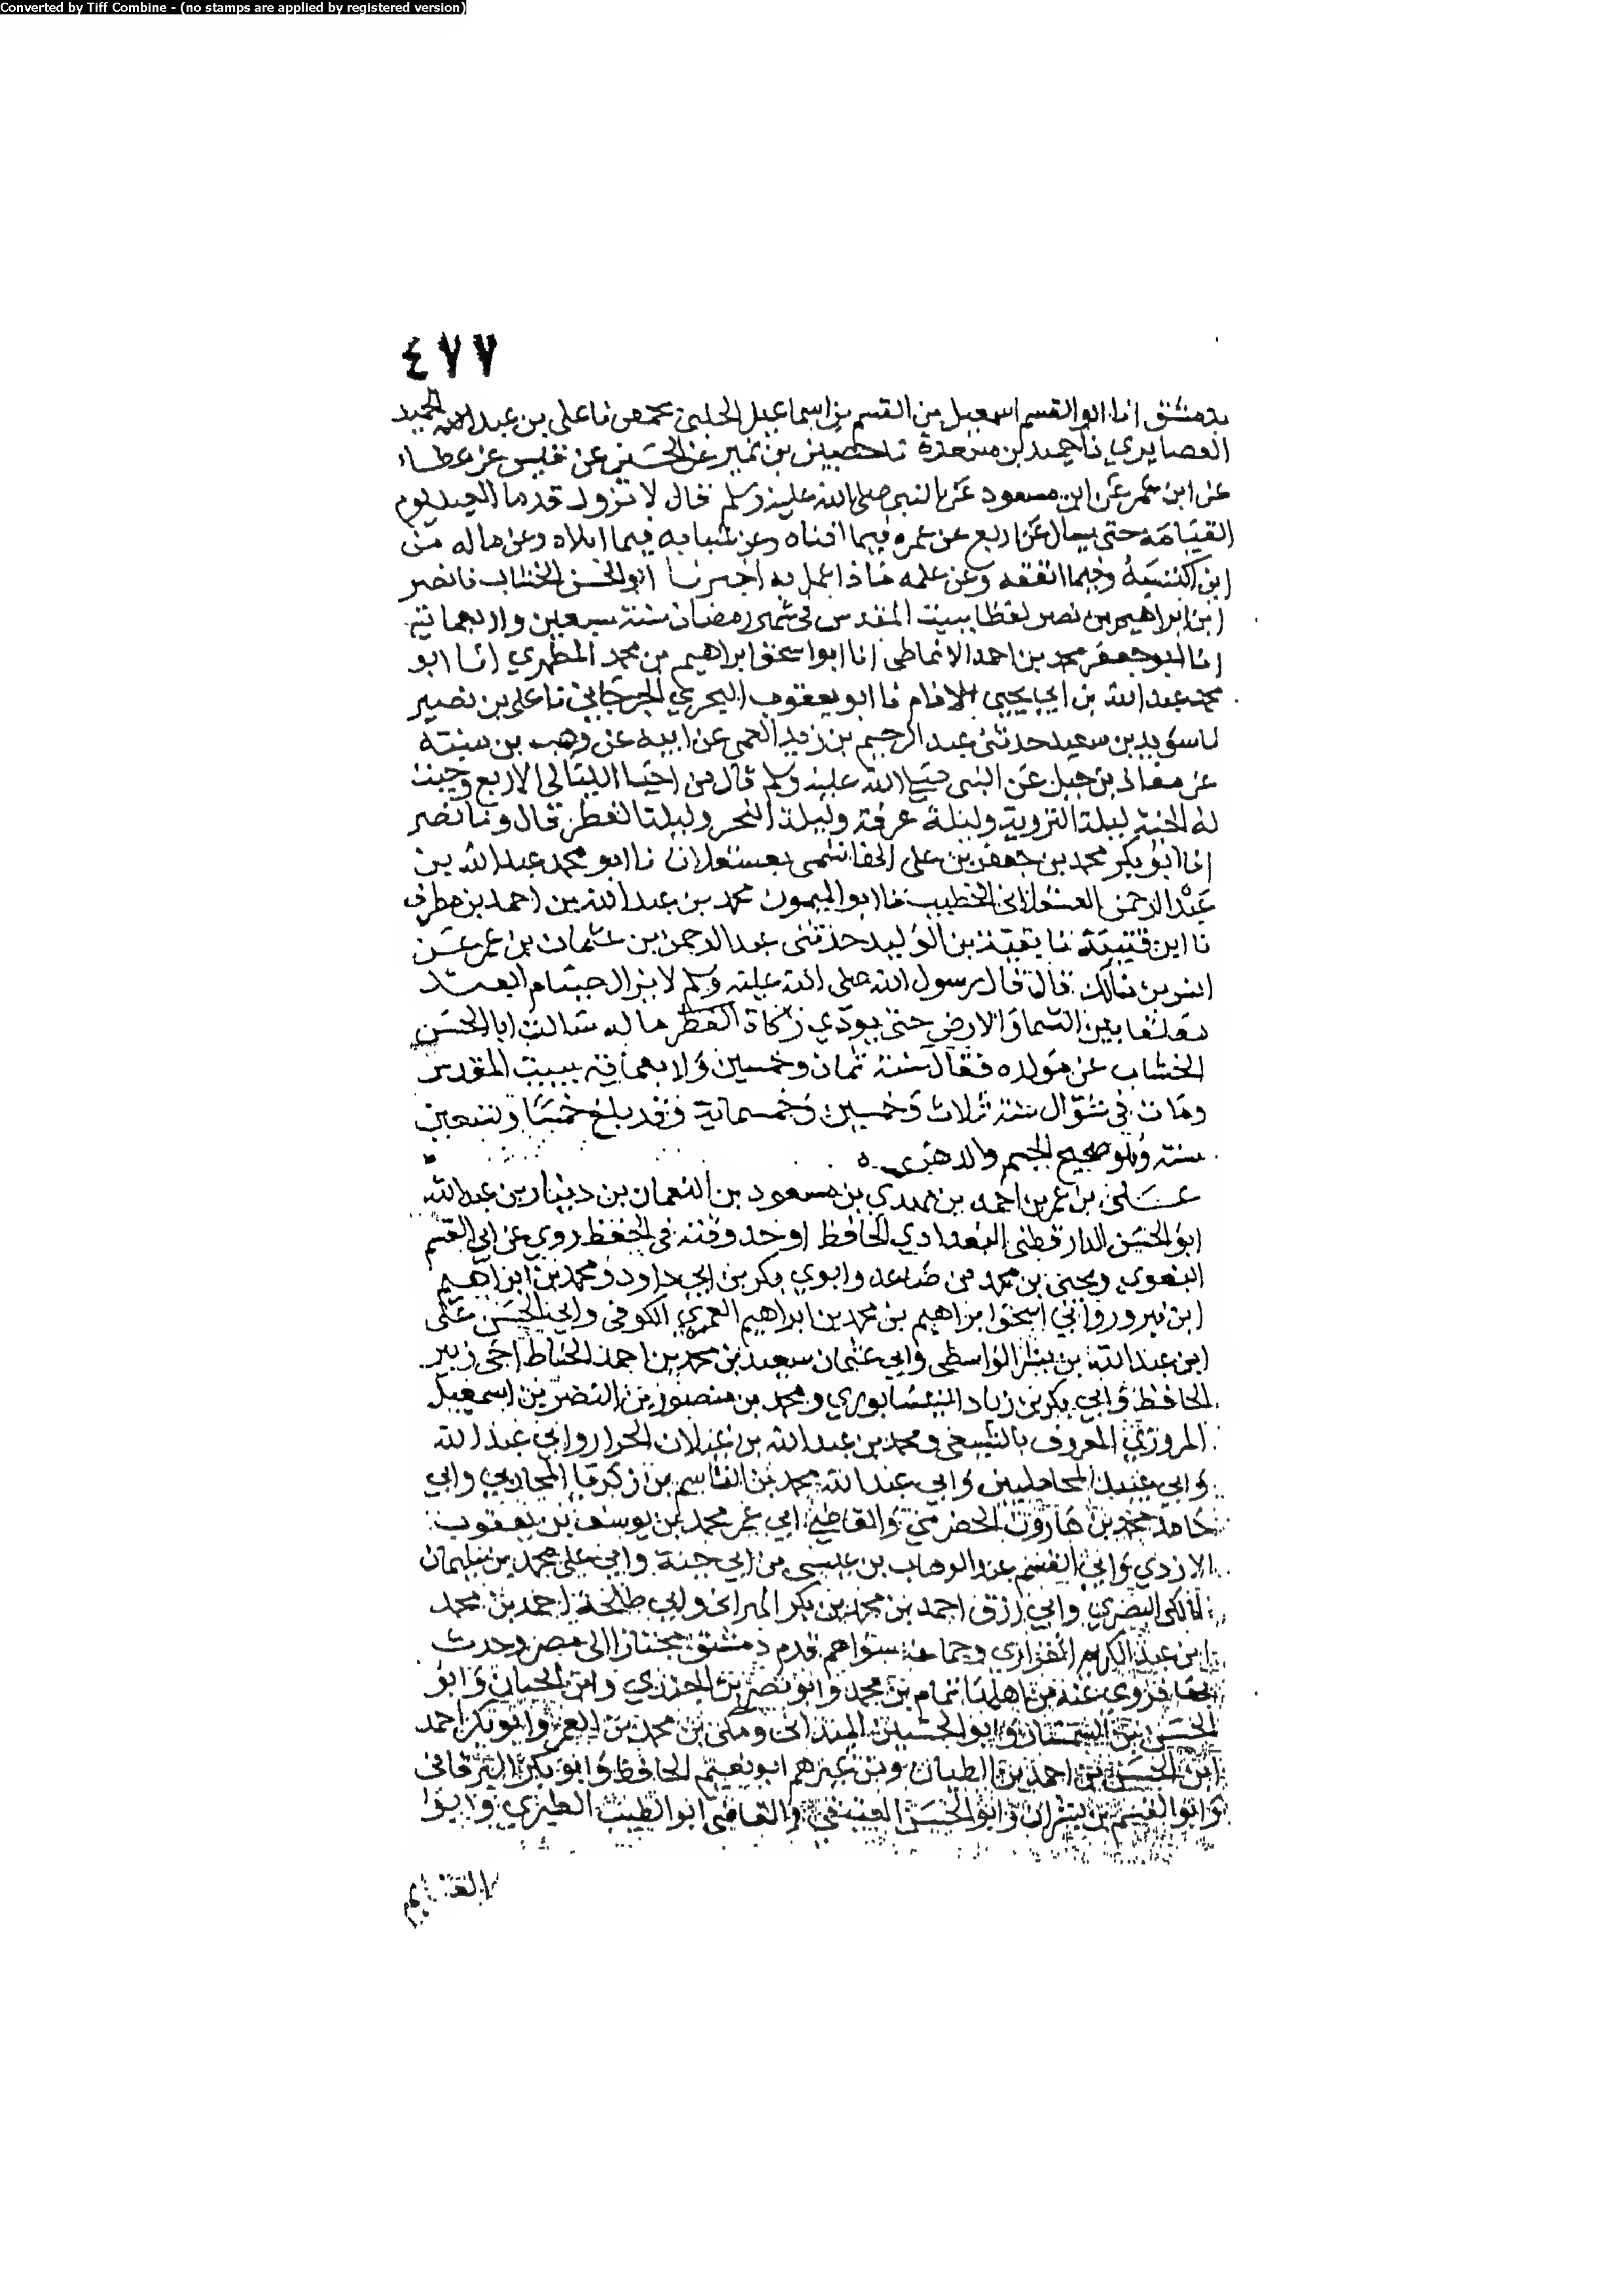 Converted by Tiff Combine - (no stamps are applied by registered version)
٤٧٧
بدمشق انا ابو القسم اسمعيل بن القسم بن اسماعيل الحلبي بحمص نا علي بن عبد الحميد
الغضايري نا حميد بن مسعدة نا حصين بن نمير عن الحسين عن قيس عن عطاء
عن ابن عمر عن ابن مسعود عن النبي صلى الله عليه وسلم قال لا تزول قدما العبد يوم
القيامة حتى يسال عن اربع عن عمره فيما افناه وعن شبابه فيما ابلاه وعن ماله من
اين اكتسبه وفيما انفقه وعن علمه ماذا عمل به اخبرنا ابو الحسن الخشاب نا نصر
ابن ابراهيم بن نصر لفظا ببيت المقدس في شهر رمضان سنة سبعين واربعماية
انا ابو جعفر محمد بن احمد الانماطي انا ابو اسحق ابراهيم بن محمد المطهري انا ابو
محمد عبد الله بن ابي يحيى الامام نا ابو يعقوب البحري الجرجاني نا علي بن نصير
نا سويد بن سعيد حدثني عبد الرحيم بن زيد العمي عن ابيه عن وهب بن منبه
عن معاذ بن جبل عن النبي صلى الله عليه وسلم قال من احيا الليالي الاربع وجبت
له الجنة ليلة التروية وليلة عرفة وليلة النحر وليلة الفطر قال ونا نصر
انا ابو بكر محمد بن جعفر بن علي بعسقلان نا ابو محمد عبد الله بن
عبد الرحمن العسقلاني الخطيب نا ابو الميمون محمد بن عبد الله بن احمد بن مطرف
نا ابن قتيبة نا بقية بن الوليد حدثني عبد الرحمن بن عثمان بن عمر عن
انس بن مالك قال قال رسول الله صلى الله عليه وسلم لا يزال صيام العبد
معلقا بين السما والارض حتى يودي زكاة الفطر ماله سالت ابا الحسن
الخشاب عن مولده فقال سنة ثمان وخمسين واربعماية ببيت المقدس
ومات في شوال سنة ثلاث وخمسين وخمسماية وقد بلغ خمسا وتسعين
سنة وهو صحيح الجسم والذهن ه
علي بن عمر بن احمد بن مهدي بن مسعود بن النعمان بن دينار بن عبد الله
ابو الحسن الدارقطني البغدادي الحافظ اوحد وقته في الحفظ روي عن ابي القسم
البغوي ويحيى بن محمد بن صاعد وابوي بكر بن ابي داود ومحمد بن ابراهيم
ابن نيروز وابي اسحق ابراهيم بن محمد بن ابراهيم العمري الكوفي وابي الحسن علي
ابن عبد الله بن مبشر الواسطي وابي عثمان سعيد بن محمد بن احمد الحناط اخي زبير
الحافظ وابي بكر بن زياد النيسابوري ومحمد بن منصور بن النضر بن اسمعيل
المروزي المعروف بالشيعي ومحمد بن عبد الله بن غيلان الخزاز وابي عبد الله
وابي عبيد المحامليين وابي عبد الله محمد بن القاسم بن زكريا المحاربي وابي
حامد محمد بن هارون الحضرمي والقاضي ابي عمر محمد بن يوسف بن يعقوب
الازدي وابي القسم عبد الوهاب بن عيسى بن ابي حية وابي علي محمد بن سليمان
المالكي البصري وابي رزق احمد بن محمد بن بكر الهزاني وابي طلحة احمد بن محمد
ابن عبد الكريم الفزاري وجماعة سواهم قدم دمشق مجتازا الى مصر وحدث
بها فروي عنه من اهلها تمام بن محمد وابو نصر بن الجندي وابن الجبان وابو
الحسن بن السمسار وابو الحسين الميداني ومكي بن محمد بن الغمر وابو بكر احمد
ابن الحسن بن احمد بن الطيان ومن غيرهم ابو نعيم الحافظ وابو بكر البرقاني
وابو القسم بن بشران وابو الحسن العتيقي والقاضي ابو الطيب الطبري وابو
القسم